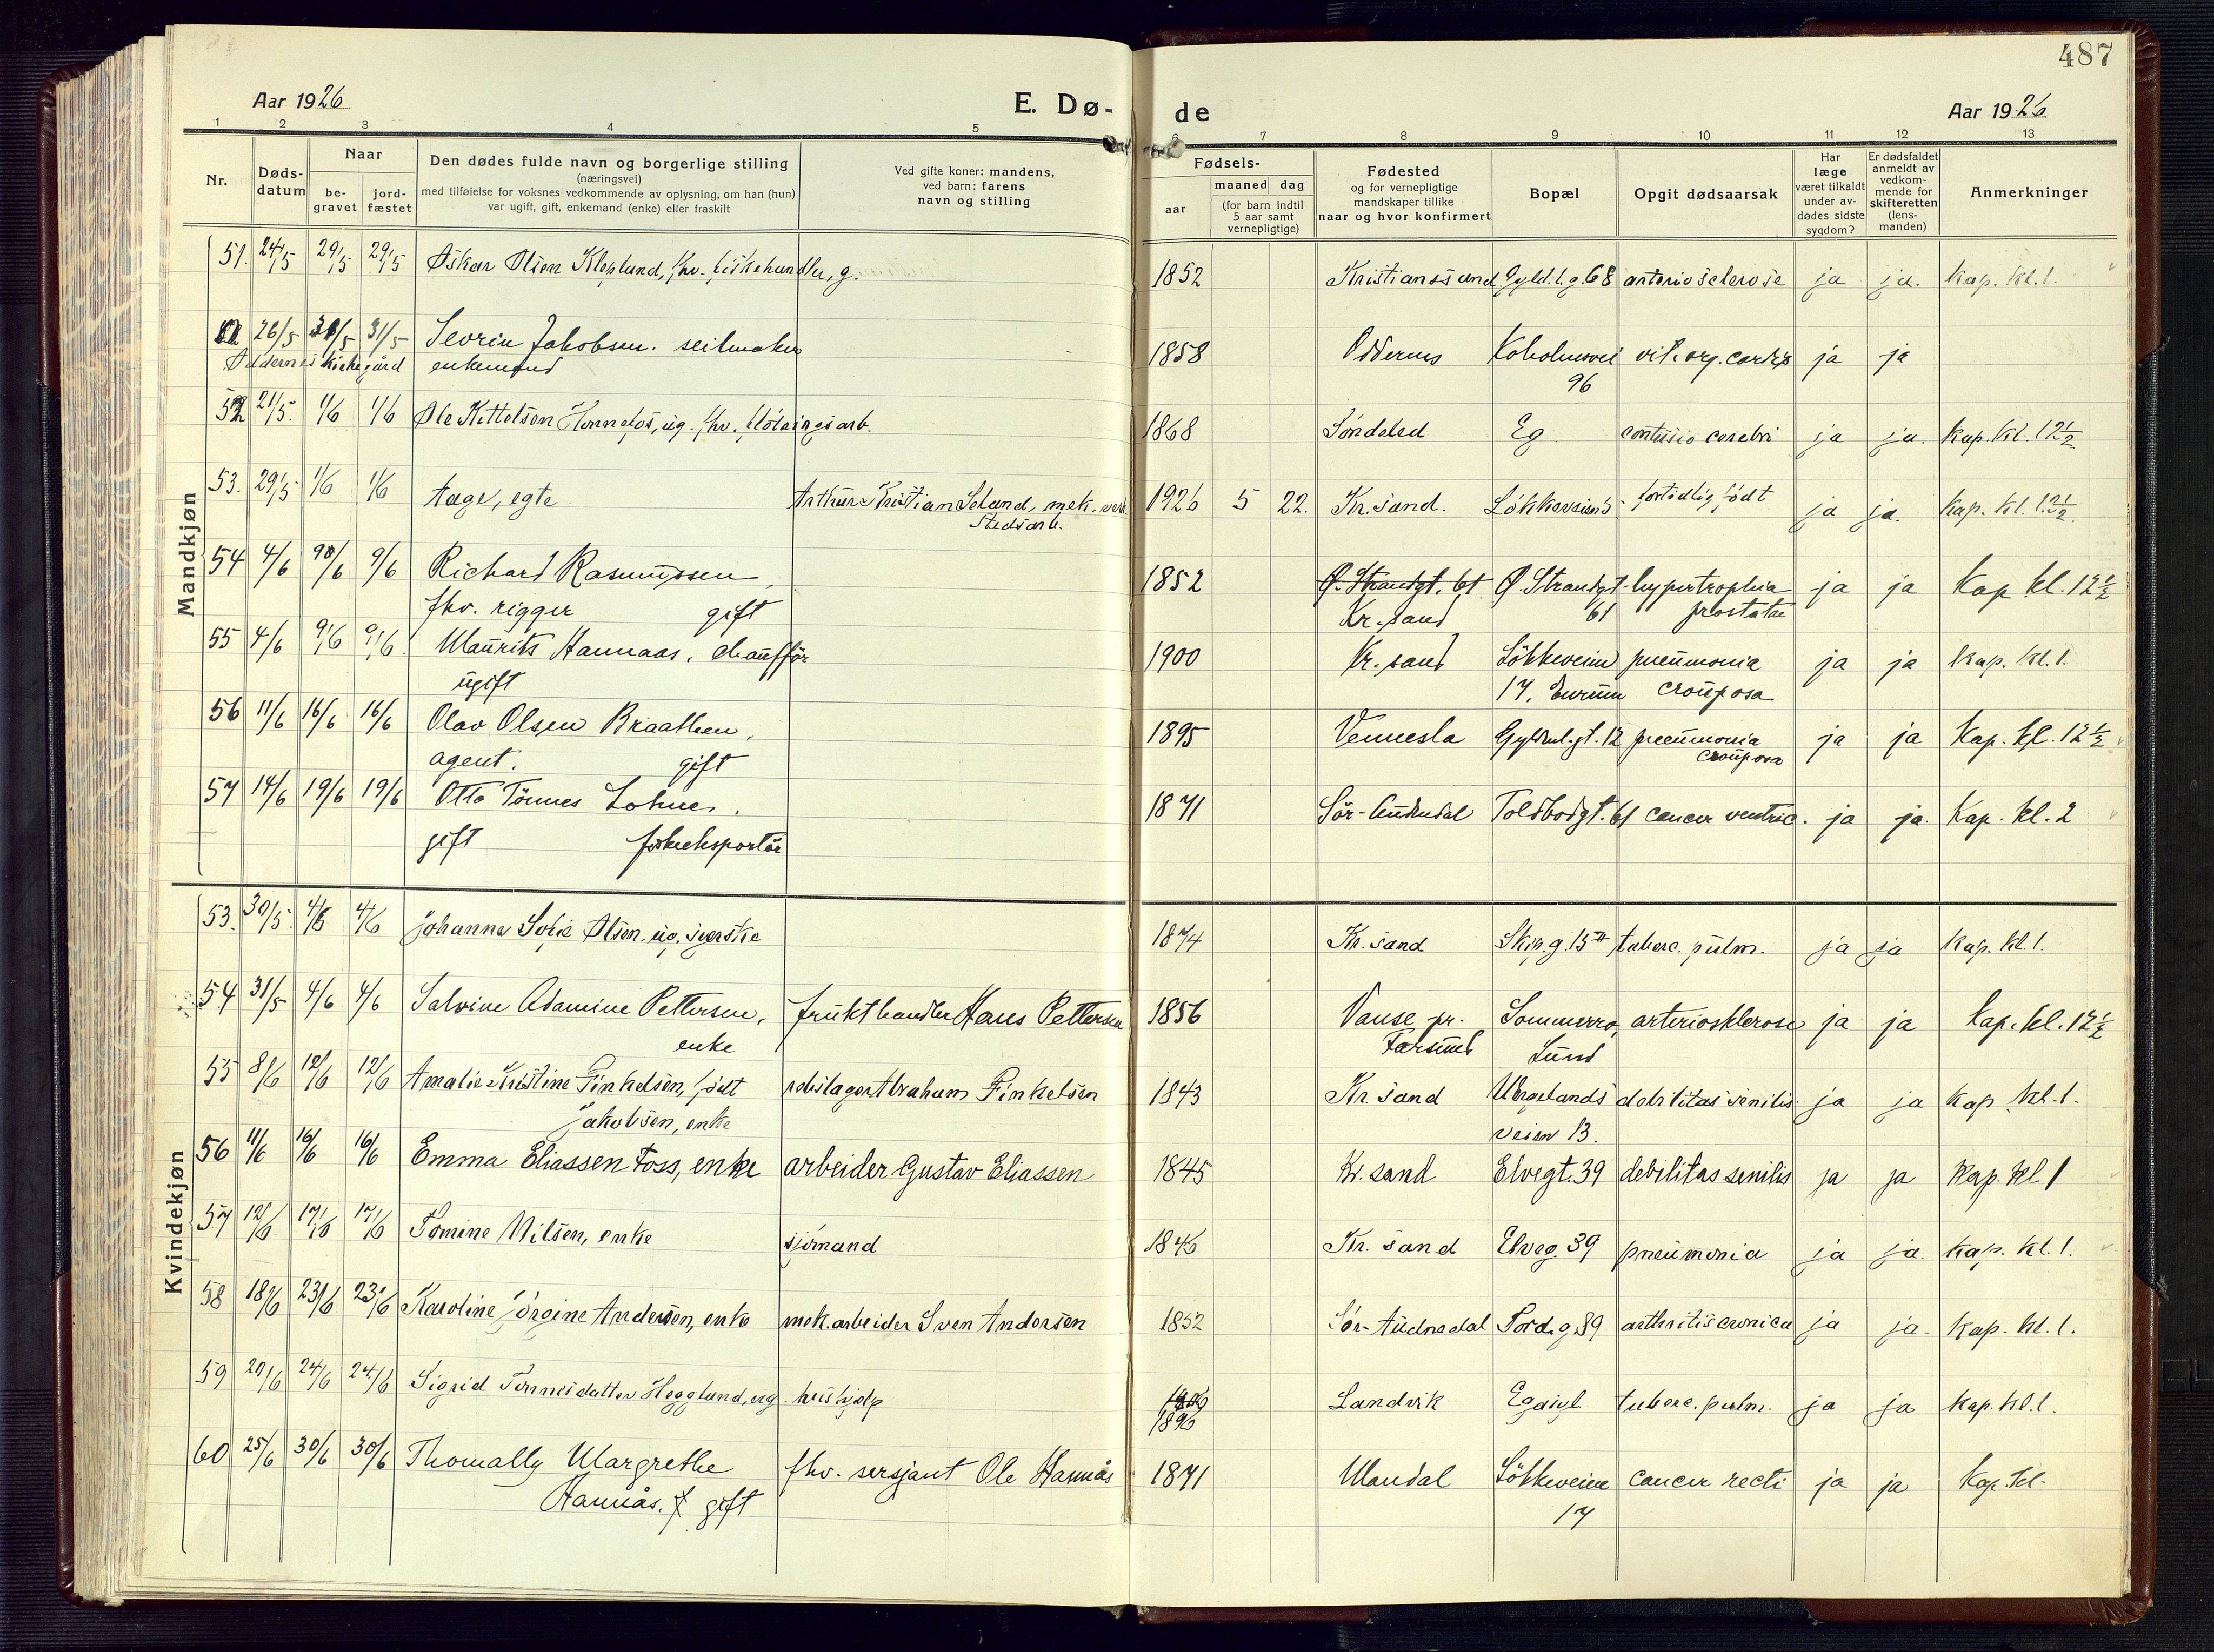 487
Aar 1926
E. Dø-
de
Aar 1926
1 2 3 4 5 6 7 8 9 10 11 12 13
Nr.
Døds-
datum
Naar
be-
gravet
jord-
fæstet
Den dødes fulde navn og borgerlige stilling
(næringsvei)
med tilføielse for voksnes vedkommende av oplysning, om han (hun)
var ugift, gift, enkemand (enke) eller fraskilt
Ved gifte koner: mandens,
ved barn: farens
navn og stilling
Fødsels-
aar
maaned dag
(for barn indtil
5 aar samt
vernepligtige)
Fødested
og for vernepligtige
mandskaper tillike
naar og hvor konfirmert
Bopæl
Opgit dødsaarsak
Har
læge
været tilkaldt
under av-
dødes sidste
sygdom?
Er dødsfaldet
anmeldt av
vedkom-
mende for
skifteretten
(lens-
manden)
Anmerkninger
Mandkjøn
51. 24/5 29/5 29/5 Oskar Olsen Kleplund, fhv. fiskehandler, g. 1852 Kristianssand Gyld.l.g.68 arteriosclerose ja ja. Kap. kl. 1.
26/5 31/5 31/5 Sevrin Jakobsen. seilmaker 1858 Oddernes Koholmvei vit. org. cordis ja ja
Oddernes kirkegård enkemand 96
52 21/5. 1/6 1/6 Ole Kittelsen ug. fhv. fløtningsarb. 1868 Søndeled Eg. contusio cerebri ja ja. Kap. kl. 12½
53. 29/5 1/6 1/6 Aage, egte Arthur Kristian Seland, mek. verk 1926 5 22. Kr.sand. Løkkeveien 5 fortidlig født ja ja. Kap. kl. 12½.
stedsarb.
54 4/6 9/6 9/6 Richard Rasmussen, 1852 Ø. Strandgt. 61 Ø. Strandgt. hypertrophia ja ja Kap kl. 12½
fhv. rigger gift Kr.sand 61 prostatae
55 4/6 9/6 9/6 Maurits Hannaas, chauffør 1900 Kr.sand Løkkeveien pneumonia ja ja Kap. kl. 1.
ugift 17, crouposa
56 11/6 16/6 16/6 Olav Olsen Braathen, 1895 Vennesla Gyldenl.gt. 12 pneumonia ja ja Kap. kl. 12½
agent. gift crouposa
57 14/6 19/6 19/6 Otto Tönnes Lohne, 1871 Sör-Audnedal Toldbodgt. 61 cancer ventric. ja ja. Kap. kl. 2
gift fiskeeksportör
Kvindekjøn
53. 30/5. 4/6 4/6 Johanne Sofie Olsen, ug. syerske 1874 Kr.sand Skip.g. 15 II tuberc. pulm. ja ja Kap. kl. 1.
54 31/5 4/6 4/6 Salvine Adamine Pettersen, frukthandler Hans Pettersen 1856 Vanse pr. Sommerro, arteriosklerose ja ja Kap. kl. 12½
enke Farsund Lund
55 8/6 12/6 12/6 Amalie Kristine Finkelsen, født rebslager Abraham Finkelsen 1843 Kr.sand Wergelands debilitas senilis ja ja Kap. kl. 1.
Jakobsen, enke veien 13.
56 11/6 16/6 16/6 Emma Eliassen Foss, enke arbeider Gustav Eliassen 1845 Kr.sand Elvegt. 39 debilitas senilis ja ja Kap. kl 1
57 12/6 17/6 17/6 Tomine Nilsen, enke sjømand 1846 Kr.sand Elveg. 39 pneumonia ja ja. Kap. kl. 1.
58 18/6 23/6 23/6 Karoline Jørgine Andersen, enke mek. arbeider Sven Andersen 1852 Sør-Audnedal Tord.g.39 arthritis cronica ja ja. Kap. kl. 1.
59 20/6 24/6 24/6 Sigrid Tønnesdatter Hegglund, ug. hushjælp 1896 Landvik Egsgt. tuberc. pulm. ja ja Kap. kl. 1.
60 25/6 30/6 30/6 Thomally Margrethe fhv. sersjant Ole Hannås 1871 Mandal Løkkeveien cancer recti ja ja Kap. kl.
Hannås. gift 17